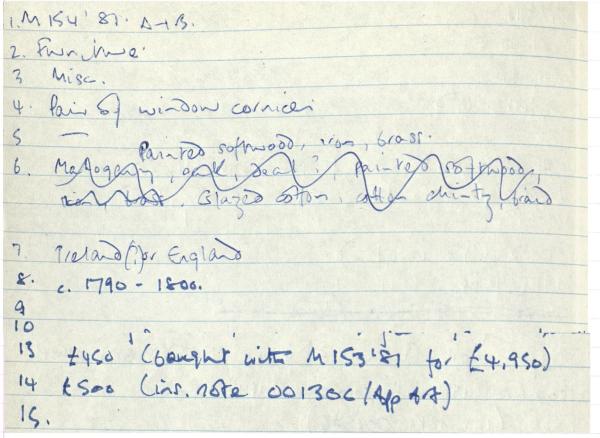 1. M 154'81. A+B.
2. Furniture.
3 Misc.
4. Pair of window cornices
5 —
Painted softwood, iron, brass.
6. Mahogany, oak, deal?, painted softwood,
iron, brass. Glazed cotton, cotton chintz, braid
7. Ireland(?) or England
8. c. 1790 - 1800.
9
10
13 £450 (bought with M 153'81 for £4,950)
14 £500 (ins. note 001306/App Art)
15.